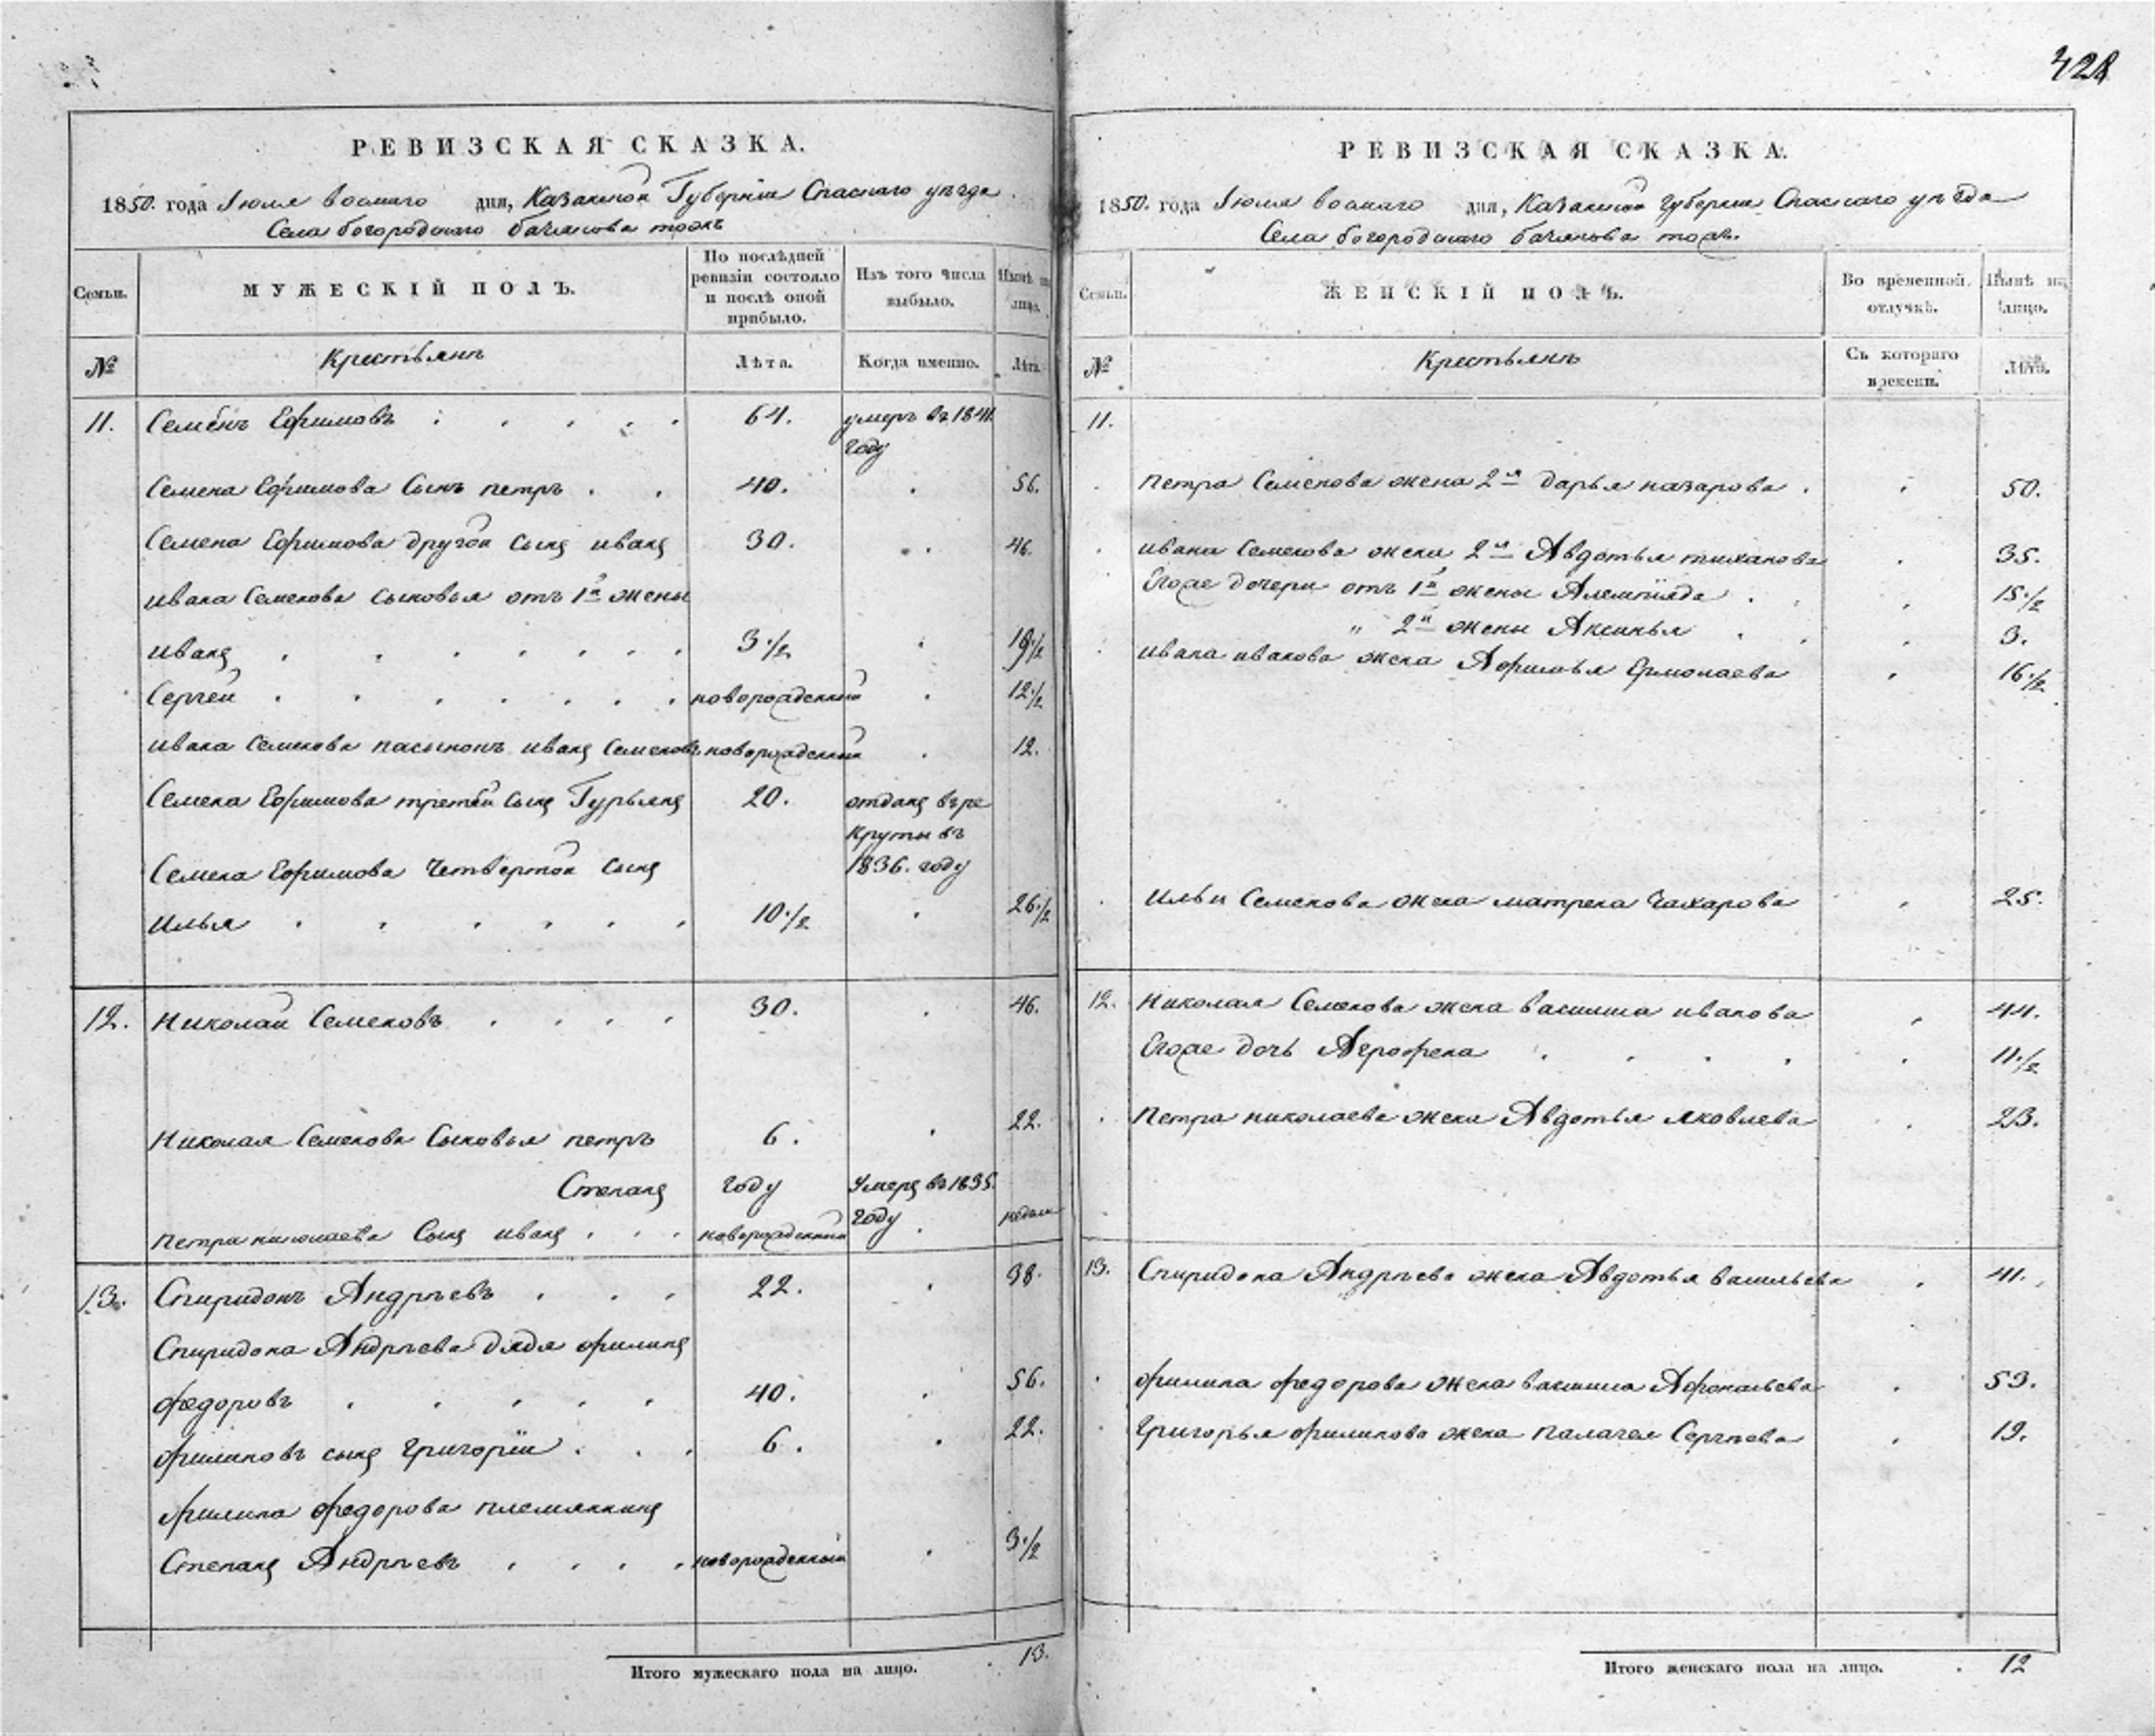 428
РЕВИЗСКАЯ СКАЗКА.
1850. года Іюля восмаго дня, Казанской Губерніи Спаскаго уѣзда
Села богородскаго бачякова тожъ
Семьи.
МУЖЕСКІЙ ПОЛЪ.
По послѣдней ревизіи состояло и послѣ оной прибыло.
Изъ того числа выбыло.
Нынѣ на лицо.
№
Крестьянъ
Лѣта.
Когда именно.
Лѣта.
11. Семёнъ Ефимовъ 64. умеръ въ 1841.
году
Семена Ефимова Сынъ петръ 40. 56.
Семена Ефимова другой сынъ иванъ 30. 46.
ивана Семенова сыновья отъ 1й жены
иванъ 3½ 19½
Сергей новорожденный 12½
ивана Семенова пасынокъ иванъ Семеновъ новорожденный 12.
Семена Ефимова третей сынъ Гурьянъ 20. отданъ въ ре
круты въ
Семена Ефимова Четвертой сынъ 1836. году
илья 10½ 26½
12. Николай Семеновъ 30. 46.
Николая Семенова Сыновья петръ 6. 22.
Степанъ году Умеръ въ 1835.
году
петра николаева Сынъ иванъ новорожденный недели
13. Спиридонъ Андрѣевъ 22. 38.
Спиридона Андрѣева дядя филипъ
федоровъ 40. 56.
филиповъ сынъ григорій 6. 22.
филипа федорова племянникъ
Степанъ Андрѣевъ новорожденный 3½
Итого мужескаго пола на лицо. 13.
РЕВИЗСКАЯ СКАЗКА.
1850. года Іюля восмаго дня, Казанской губерніи Спаскаго уѣзда
Села богородскаго бачякова тожъ.
Семьи.
ЖЕНСКІЙ ПОЛЪ.
Во временной отлучкѣ.
Нынѣ на лицо.
№
Крестьянъ
Съ котораго времени.
Лѣта.
11.
петра Семенова жена 2я дарья назарова 50.
ивана Семенова жена 2я Авдотья тиханова 35.
Егоже дочери отъ 1й жены Алемпіяда 15½
" 2й жены Аксинья 3.
ивана иванова жена Афимья Ермолаева 16½
ильи Семенова жена матрена Захарова 25.
12. Николая Семенова жена василиса иванова 44.
Егоже дочь Агрофена 11½
Петра николаева жена Авдотья яковлева 23.
13. Спиридона Андрѣева жена Авдотья васильева 41.
филипа федорова жена василиса Афонасьева 53.
Григорья филипова жена палагея Сергѣева 19.
Итого женскаго пола на лицо. 12